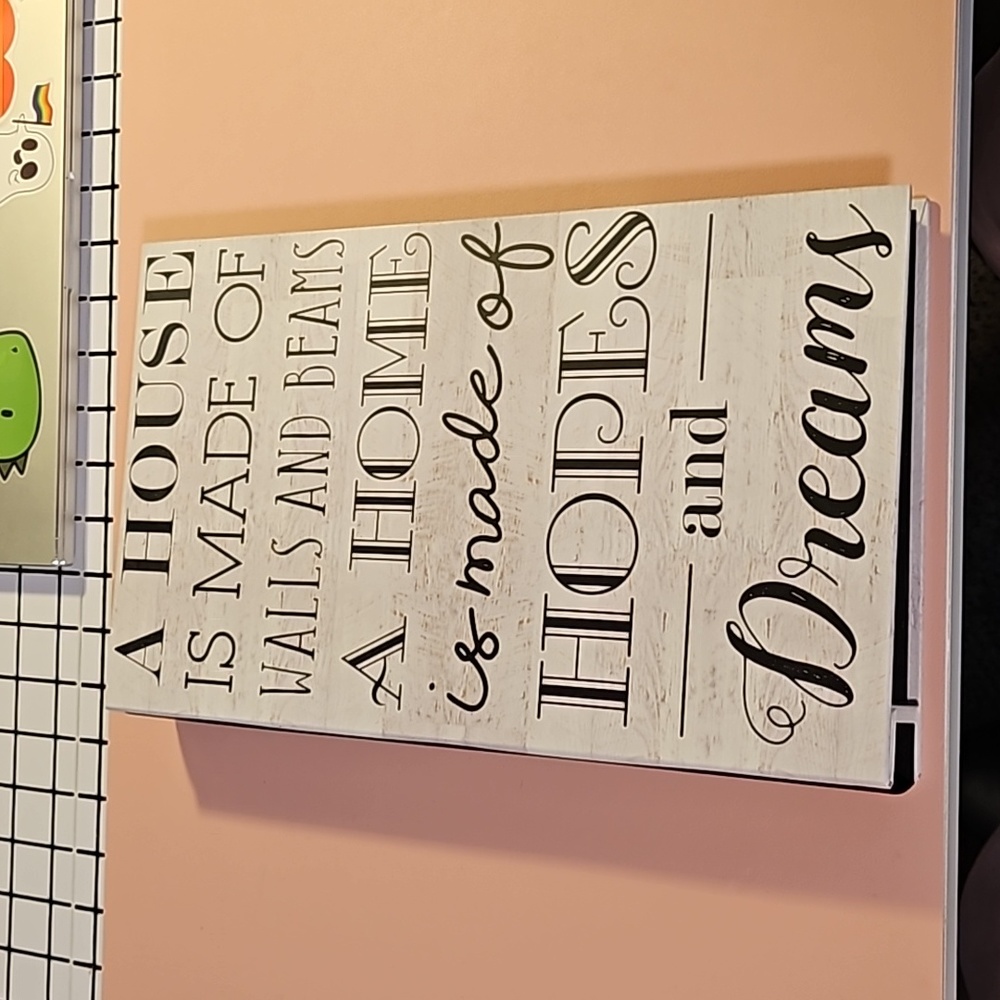 A HOUSE
IS MADE OF
WALLS AND BEAMS
A HOME
is made of
HOPES
and
Dreams